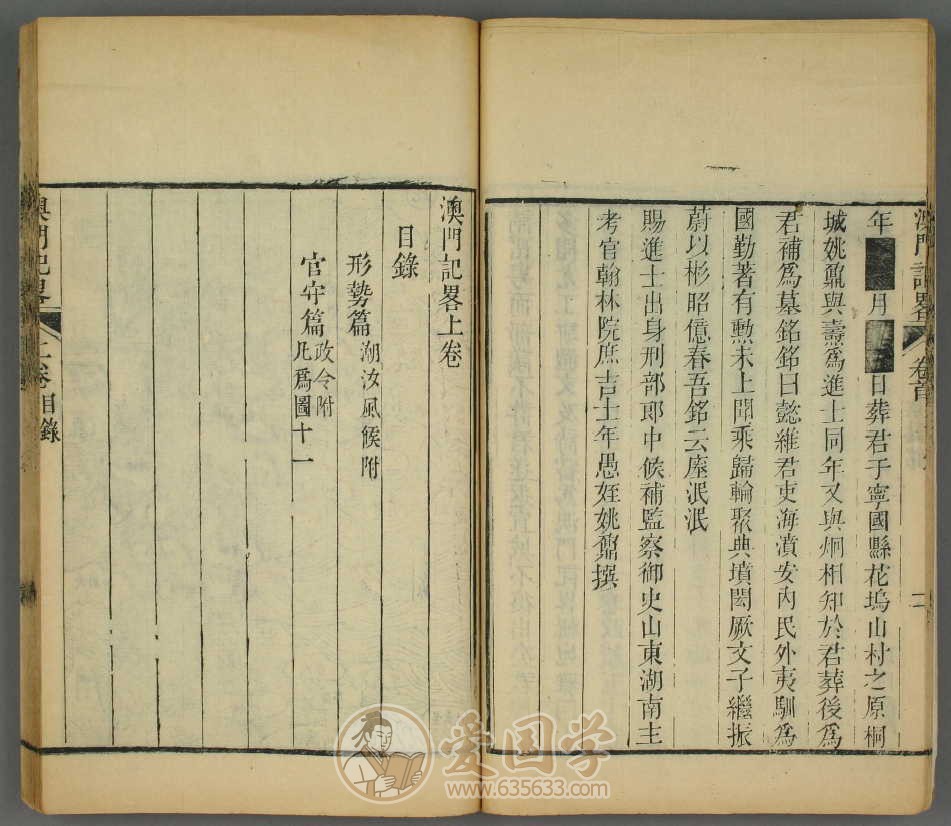 澳門記畧 卷首 二
年■■月■■日葬君于寧國縣花塢山村之原桐
城姚鼐與壽爲進士同年又與炯相知於君葬後爲
君補爲墓銘銘曰懿維君吏海濆安內民外夷馴爲
國勤著有勲未上聞乘歸輪聚典墳閎厥文子繼振
蔚以彬昭億春吾銘云座泯泯
賜進士出身刑部郎中候補監察御史山東湖南主
考官翰林院庶吉士年愚姪姚鼐撰
澳門記畧上卷
目錄
形勢篇 潮汐風候附
官守篇 政令附
凡爲圖十一
澳門記畧 上卷目錄
爱国学
www.635633.com